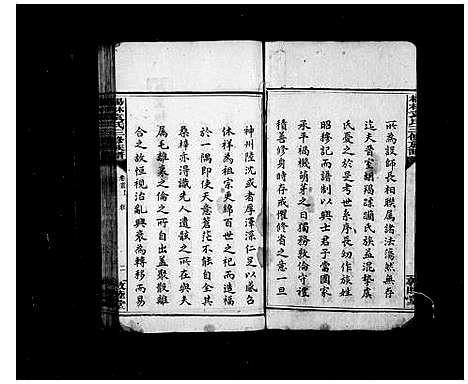 所為設師長相聯屬諸法蕩然無存
迄夫晉室顛羯跺躪氏族益混摯虞
氏憂之於是考世系序長幼作族姓
昭穆記而譜制以興士君子於當國家
承平禍機萌芽之日獨務敦倫守禮
積善修身時存戒懼修省之意一旦
神州陸沈或者厚澤深仁足以感召
休祥為祖宗更綿百世之祀而造福
於一隅即使天意蒼茫不能自全其
桑梓亦得識先人遺骸之所在與夫
屬毛離裏之倫之所自出蓋聚散離
合之故恒視治亂興衰為轉移而易
卷首上
二